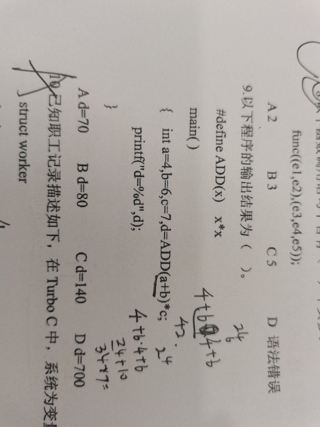 func((e1,e2),(e3,e4,e5));
A 2 B 3 C 5 D 语法错误
9.以下程序的输出结果为（ ）。
#define ADD(x) x*x
main( )
{ int a=4,b=6,c=7,d=ADD(a+b)*c;
printf("d=%d",d);
}
A d=70 B d=80 C d=140 D d=700
10.已知职工记录描述如下，在 Turbo C 中，系统为变
struct worker
4+6
4+6
42
24
4+6·4+6
24+10
34×7=